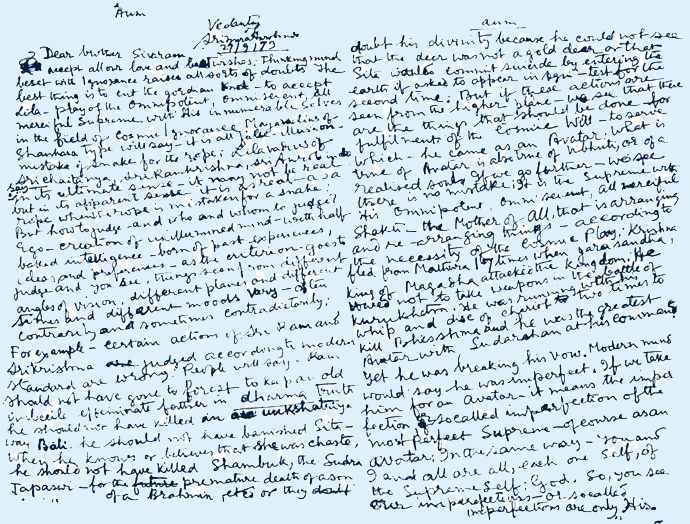 Aum
Vedanty
27/9/73
Dear brother Sivaram
accept all our love and best wishes. Thinking mind
beset with Ignorance raises all sorts of doubts. The
best thing is to cut the gordian knot - to accept
lila - play of the Omnipotent, Omniscient, all
merciful Supreme with His innumerable selves
in the field of Cosmic Ignorance Maya
Shankara will say - it is all illusion -
mistake for the rope; Lilavadins of
Sri Chaitanya, Sri Ramkrishna, Sri Aurobindo
say in its ultimate sense - it may not be real
but in its apparent sense - it is real - as a
rope when it is mistaken for a snake.
But how to judge - and who and whom to judge?
Ego - creation of unillumined mind - with half
baked intelligence - born of past experiences,
ideas and preferences - as its criterion - goes to
judge and you see, things seen from different
angles of vision, different planes and different
times and different moods vary - often
contrary and sometimes contradictory.
For example - certain actions of Sri Ram and
Sri Krishna judged according to modern
standard are wrong. People will say - Ram
should not have gone to forest to keep an old
imbecile effeminate father in
he should not have killed an
way Bali. he should not have banished Sita -
when he knows or believes that she was chaste,
he should not have killed Shambuk, the Sudra
Tapaswi - for the premature death of a son
of a Brahmin, etc. or they
aum
doubt his divinity because he could not see
that the deer was not a gold deer or that
Sita would commit suicide by entering the
earth if asked to appear in agni - test for the
second time. But if these actions are
seen from the higher plane - we see that these
are the things that should be done - for
fulfilment of the Cosmic Will - to serve
which - he came as an Avatar. What is
true of Avatar is also true of Vibhuti, or of a
realised soul. If we go further - we see
there is no mistake; it is the Supreme with
His Omnipotent, Omniscient, all merciful
Shakti - the Mother of All, that is arranging
and re-arranging things - according to
the necessity of the Cosmic Play; Krishna
fled from Mathura times when Jarasandha,
King of Magadha attacked the kingdom; He
vowed not to take weapons in the battle of
Kurukshetra - He was running with
whip and disc or chariot two times to
kill Bhishma and he was the greatest
Avatar with Sudarshan at his command
yet he was breaking his vow. Modern mind
would say he was imperfect. If we take
him for an Avatar - it means the imper
fection or so called imperfection of the
most perfect Supreme - of course as an
avatar; In the same way - you and
I and all are all, each one Self, of
the Supreme Self: God. So, you see
our imperfections or so called
imperfections are only His.